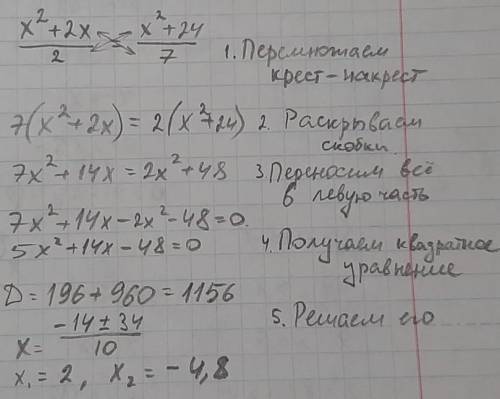 x² + 2x / 2 = x² + 24 / 7
1. Перемножаем
крест-накрест
7(x² + 2x) = 2(x² + 24) 2. Раскрываем
скобки.
7x² + 14x = 2x² + 48 3. Переносим всё
в левую часть
7x² + 14x - 2x² - 48 = 0.
5x² + 14x - 48 = 0 4. Получаем квадратное
уравнение
D = 196 + 960 = 1156
x = -14 ± 34 / 10 5. Решаем его
x₁ = 2, x₂ = -4,8